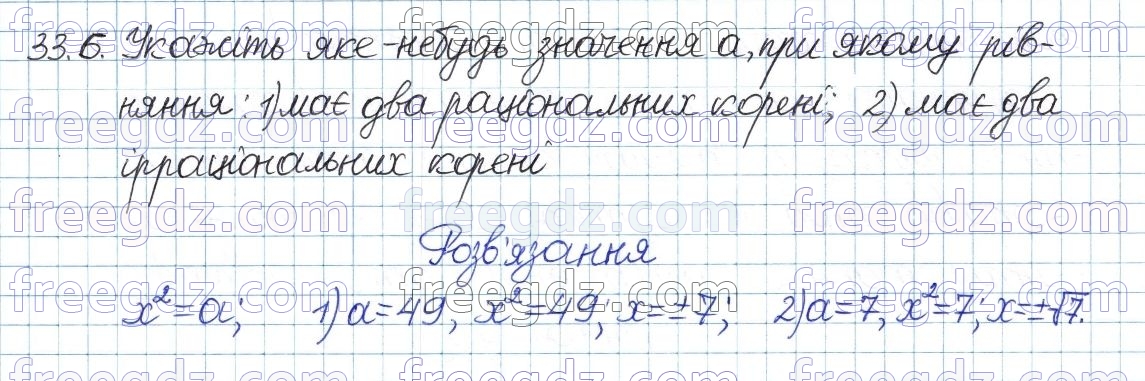 33.6. Укажіть яке-небудь значення a, при якому рів-
няння: 1) має два раціональних корені; 2) має два
ірраціональних корені
Розв'язання
x²=a; 1) a=49, x²=49; x=±7; 2) a=7, x²=7; x=±√7.